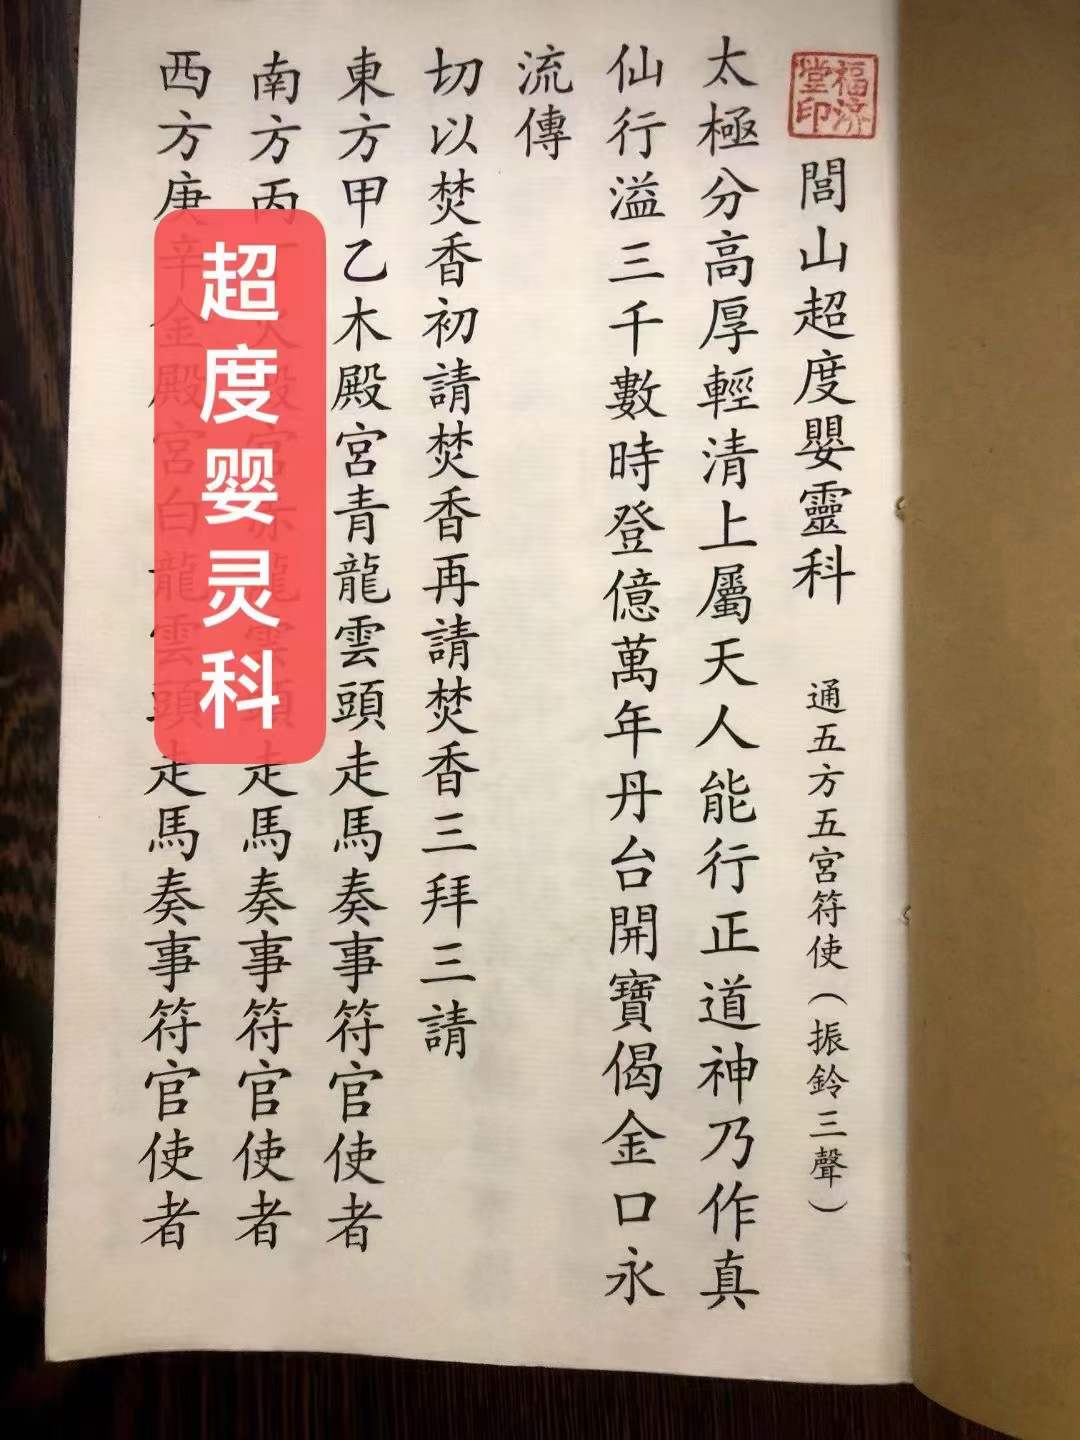 福濟堂印
閭山超度嬰靈科 通五方五宮符使（振鈴三聲）
太極分高厚輕清上屬天人能行正道神乃作真
仙行溢三千數時登億萬年丹台開寶偈金口永
流傳
切以焚香初請焚香再請焚香三拜三請
東方甲乙木殿宮青龍雲頭走馬奏事符官使者
南方丙丁火殿宮赤龍雲頭走馬奏事符官使者
西方庚辛金殿宮白龍雲頭走馬奏事符官使者
超度婴灵科